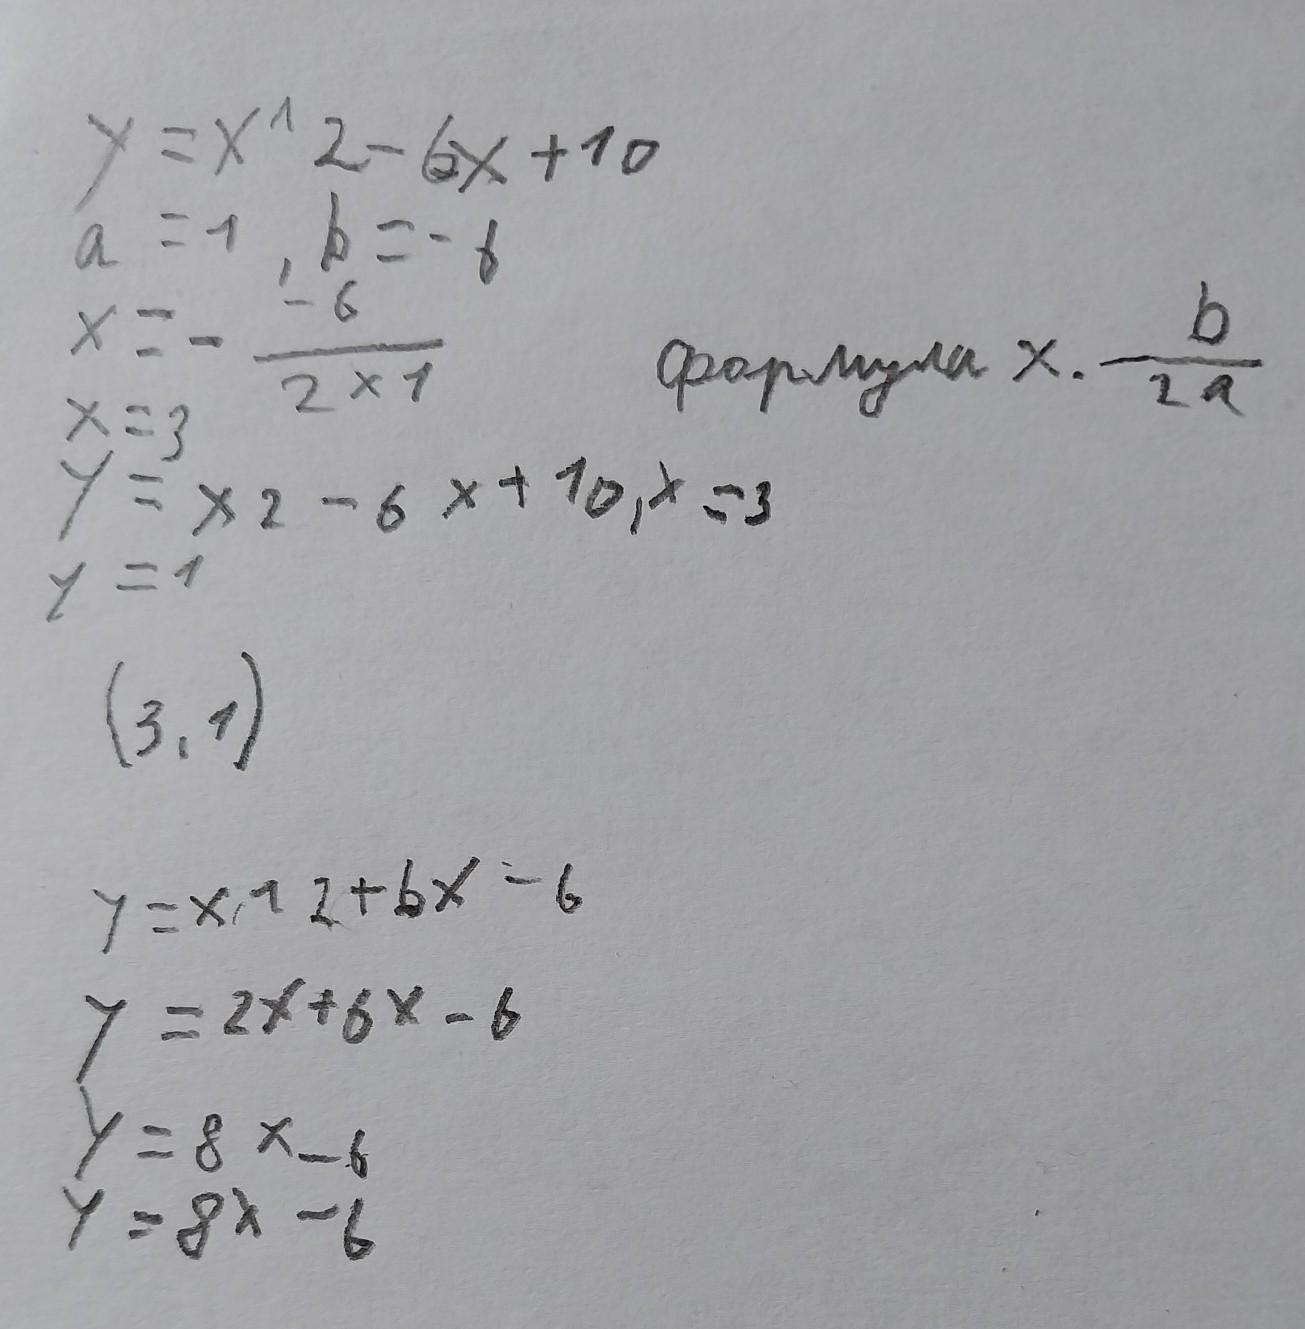 y = x^2 - 6x + 10
a = 1, b = -6
x = - \frac{-6}{2 × 1}
формула x. - \frac{b}{2a}
x = 3
y = x2 - 6x + 10, x = 3
y = 1
(3,1)
y = x^2 + 6x - 6
y = 2x + 6x - 6
y = 8x - 6
y = 8x - 6